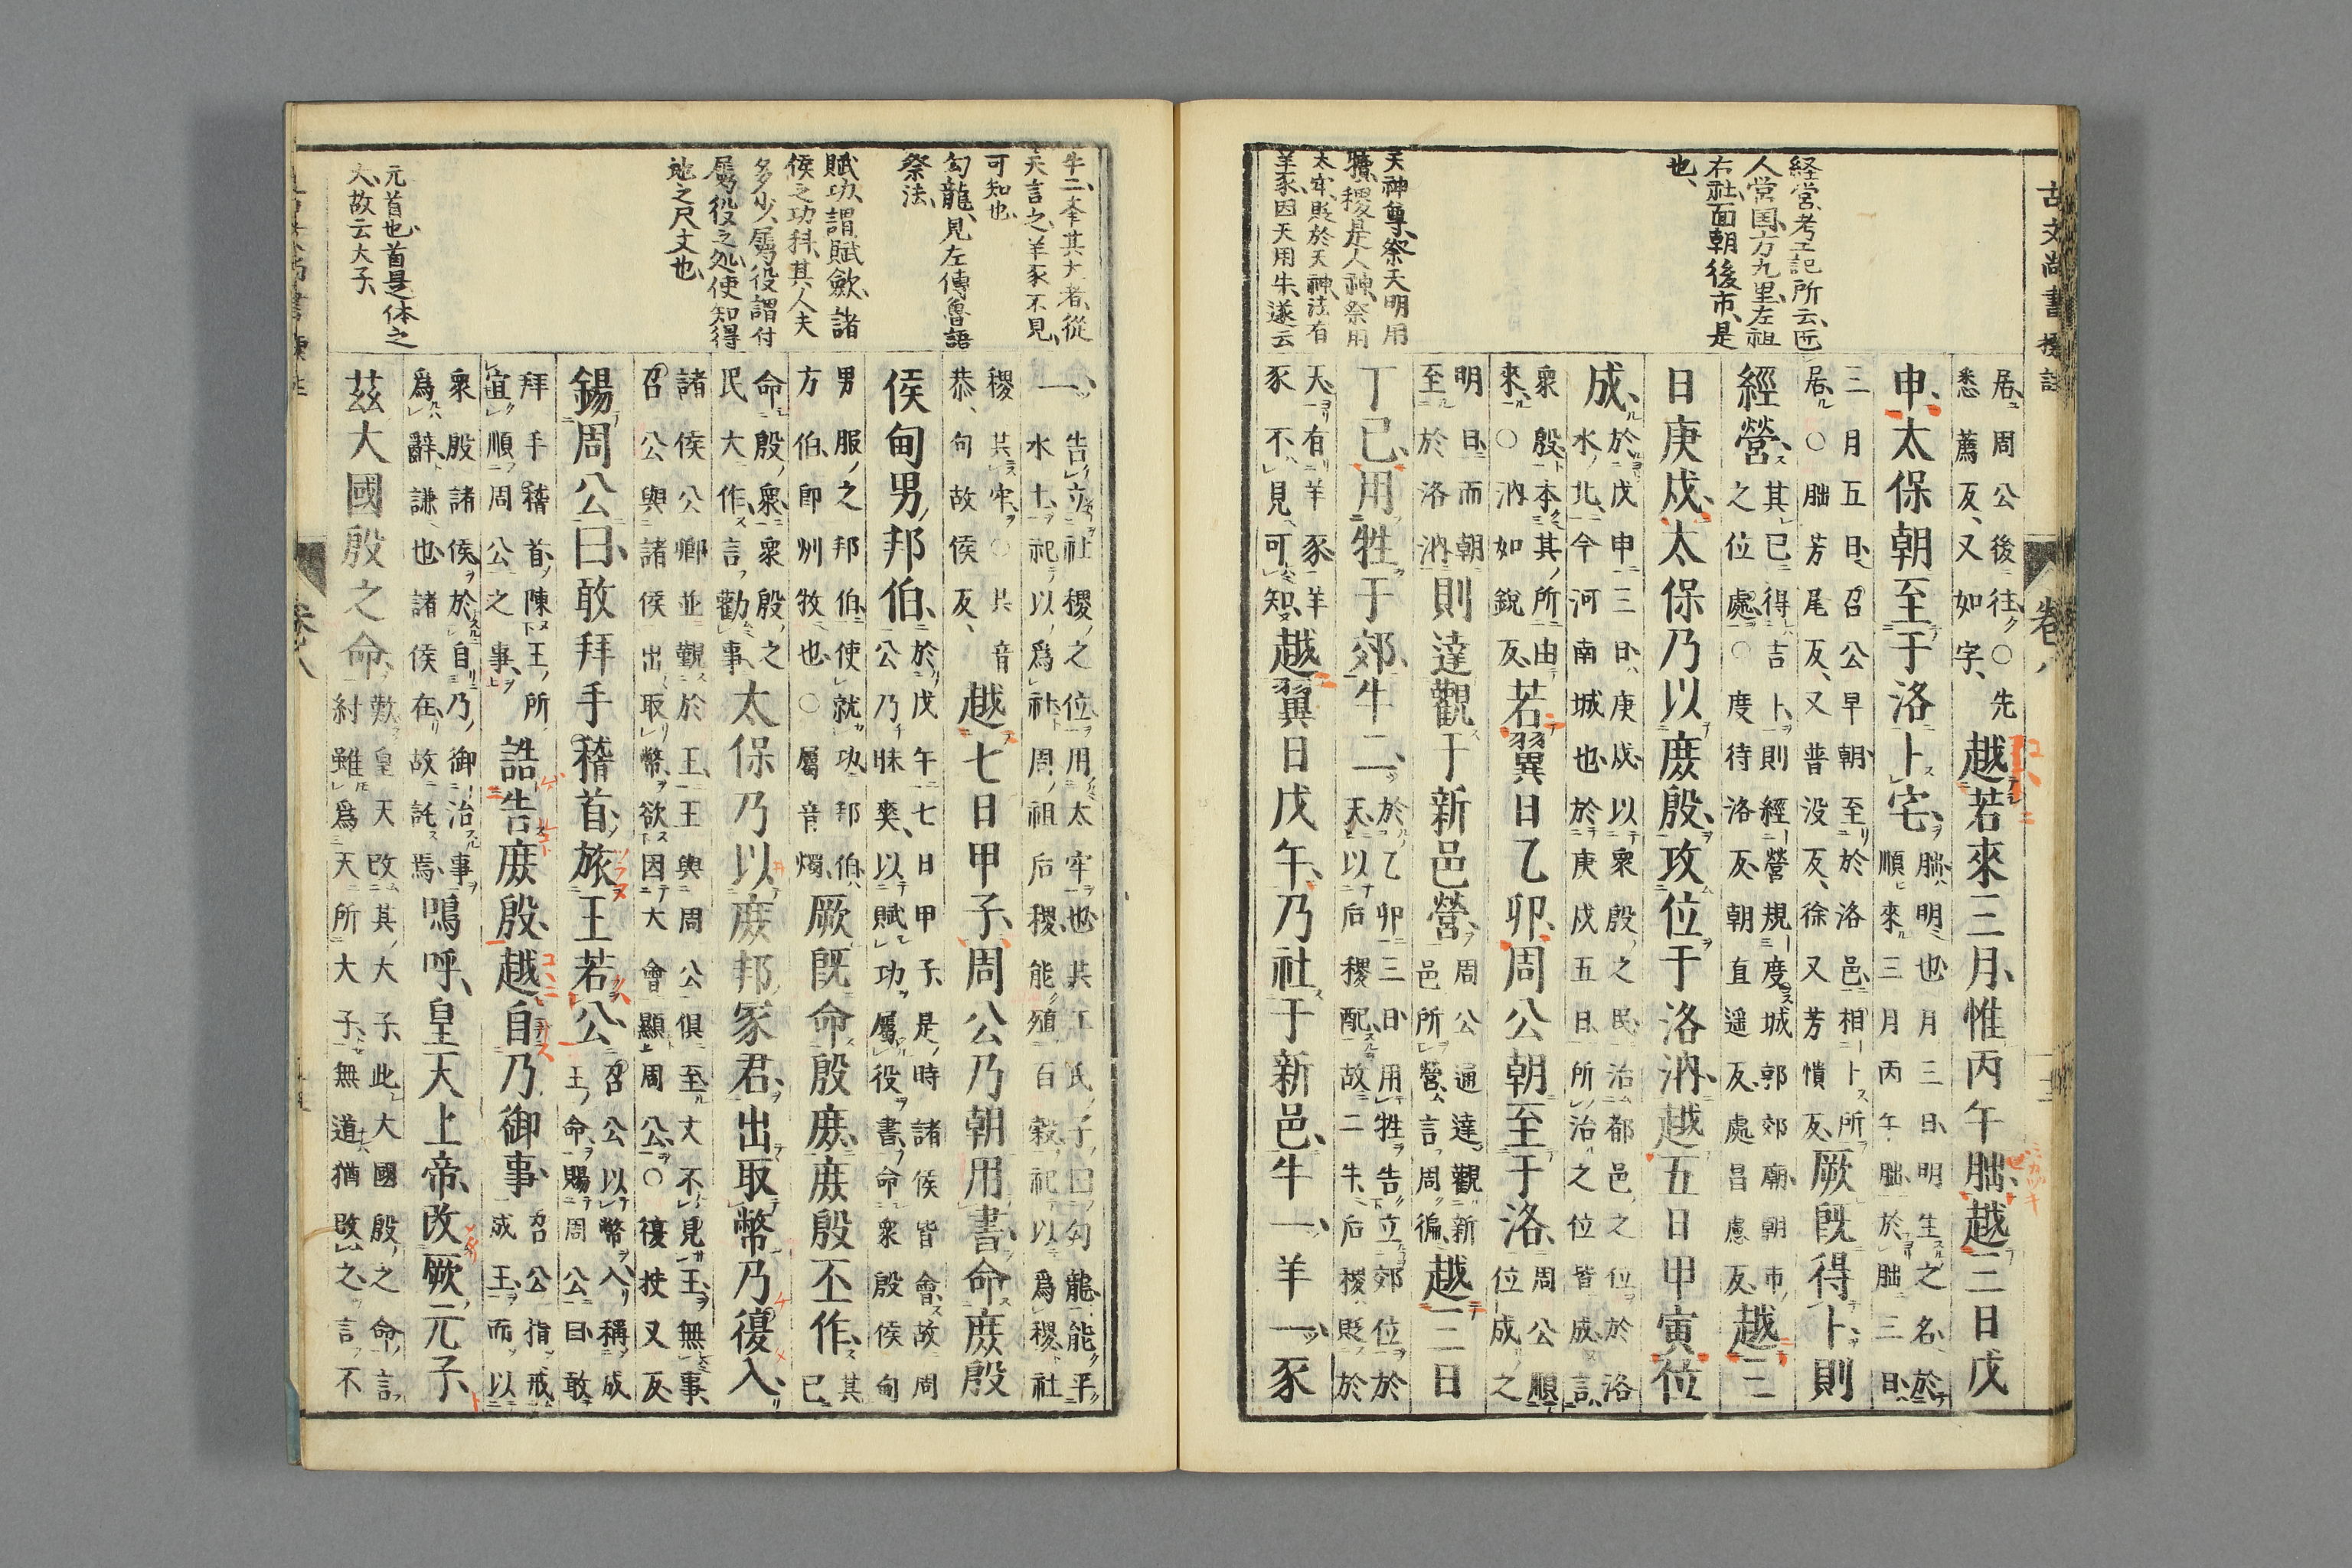 古文尚書標註　卷八
経営考工記所云匠
人営国方九里左祖
右社面朝後市是
也
天神尊祭天明用
犢稷是人神祭用
太牢貶於天神法有
羊豕因天用牛遂云
居周公後往○先
悉薦反又如字
越若來三月惟丙午朏越三日戊
申太保朝至于洛卜宅
朏明也月三日明生之名於
順來三月丙午朏於朏三日
三月五日召公早朝至於洛邑相卜所
居○朏芳尾反又普没反徐又芳憒反
厥既得卜則
經營
其已得吉卜則經營規度城郭郊廟朝市
之位處○度待洛反朝直遥反處昌慮反
越三
日庚戌太保乃以庶殷攻位于洛汭越五日甲寅位
成
於戊申三日庚戌以衆殷之民治都邑之位於洛
水北今河南城也於庚戌五日所治之位皆成言
衆殷本其所由
來○汭如銳反
若翼日乙卯周公朝至于洛
周公順
位成之
明日而朝
至於洛汭
則達觀于新邑營
周公通達觀新
邑所營言周徧
越三日
丁巳用牲于郊牛二
於乙卯三日用牲告立郊位於
天以后稷配故二牛后稷貶於
天有羊豕羊
豕不見可知
越翼日戊午乃社于新邑牛一羊一豕
牛二挙其大者從
天言之羊豕不見
可知也
勾龍見左傳魯語
祭法
賦功謂賦斂諸
侯之功科其人夫
多少屬役謂付
屬役之処使知得
地之尺丈也
元首也首是体之
大故云大子
一
告立社稷之位用太牢也共工氏子曰勾龍能平
水土祀以爲社周祖后稷能殖百穀祀以爲稷社
稷共牢○共音
恭句故侯反
越七日甲子周公乃朝用書命庶殷
侯甸男邦伯
於戊午七日甲子是時諸侯皆會故周
公乃昧爽以賦功屬役書命衆殷侯甸
男服之邦伯使就功邦伯
方伯即州牧也○屬音燭
厥既命殷庶庶殷丕作
其
已
命殷衆衆殷之
民大作言勸事
太保乃以庶邦冢君出取幣乃復入
諸侯公卿並覲於王王與周公俱至文不見王無事
召公與諸侯出取幣欲因大會顯周公○復扶又反
錫周公曰敢拜手稽首旅王若公
召公以幣入稱成
王命賜周公曰敢
拜手稽首陳王所
宜順周公之事
誥告庶殷越自乃御事
召公指戒
成王而以
衆殷諸侯於自乃御治事
爲辭謙也諸侯在故託焉
嗚呼皇天上帝改厥元子
茲大國殷之命
歎皇天改其大子此大國殷之命言
紂雖爲天所大子無道猶改之言不